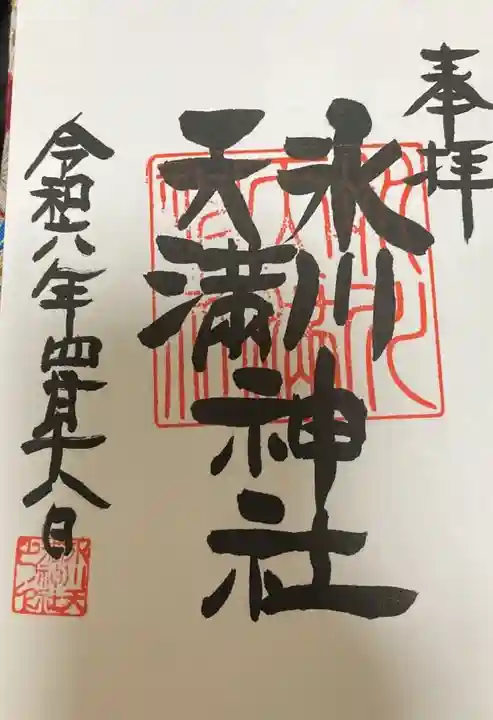 奉拝
氷川
天満
神社
令和六年四月十八日